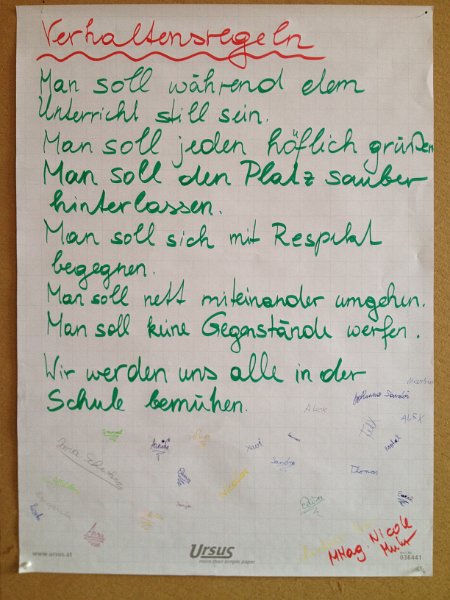 Verhaltensregeln
Man soll während dem
Unterricht still sein.
Man soll jeden höflich grüßen
Man soll den Platz sauber
hinterlassen.
Man soll sich mit Respekt
begegnen.
Man soll nett miteinander umgehen.
Man soll keine Gegenstände werfen.
Wir werden uns alle in der
Schule bemühen.
ALEX
Sandra
Thomas
Nicole
www.ursus.at
Ursus
more than simple paper
036441